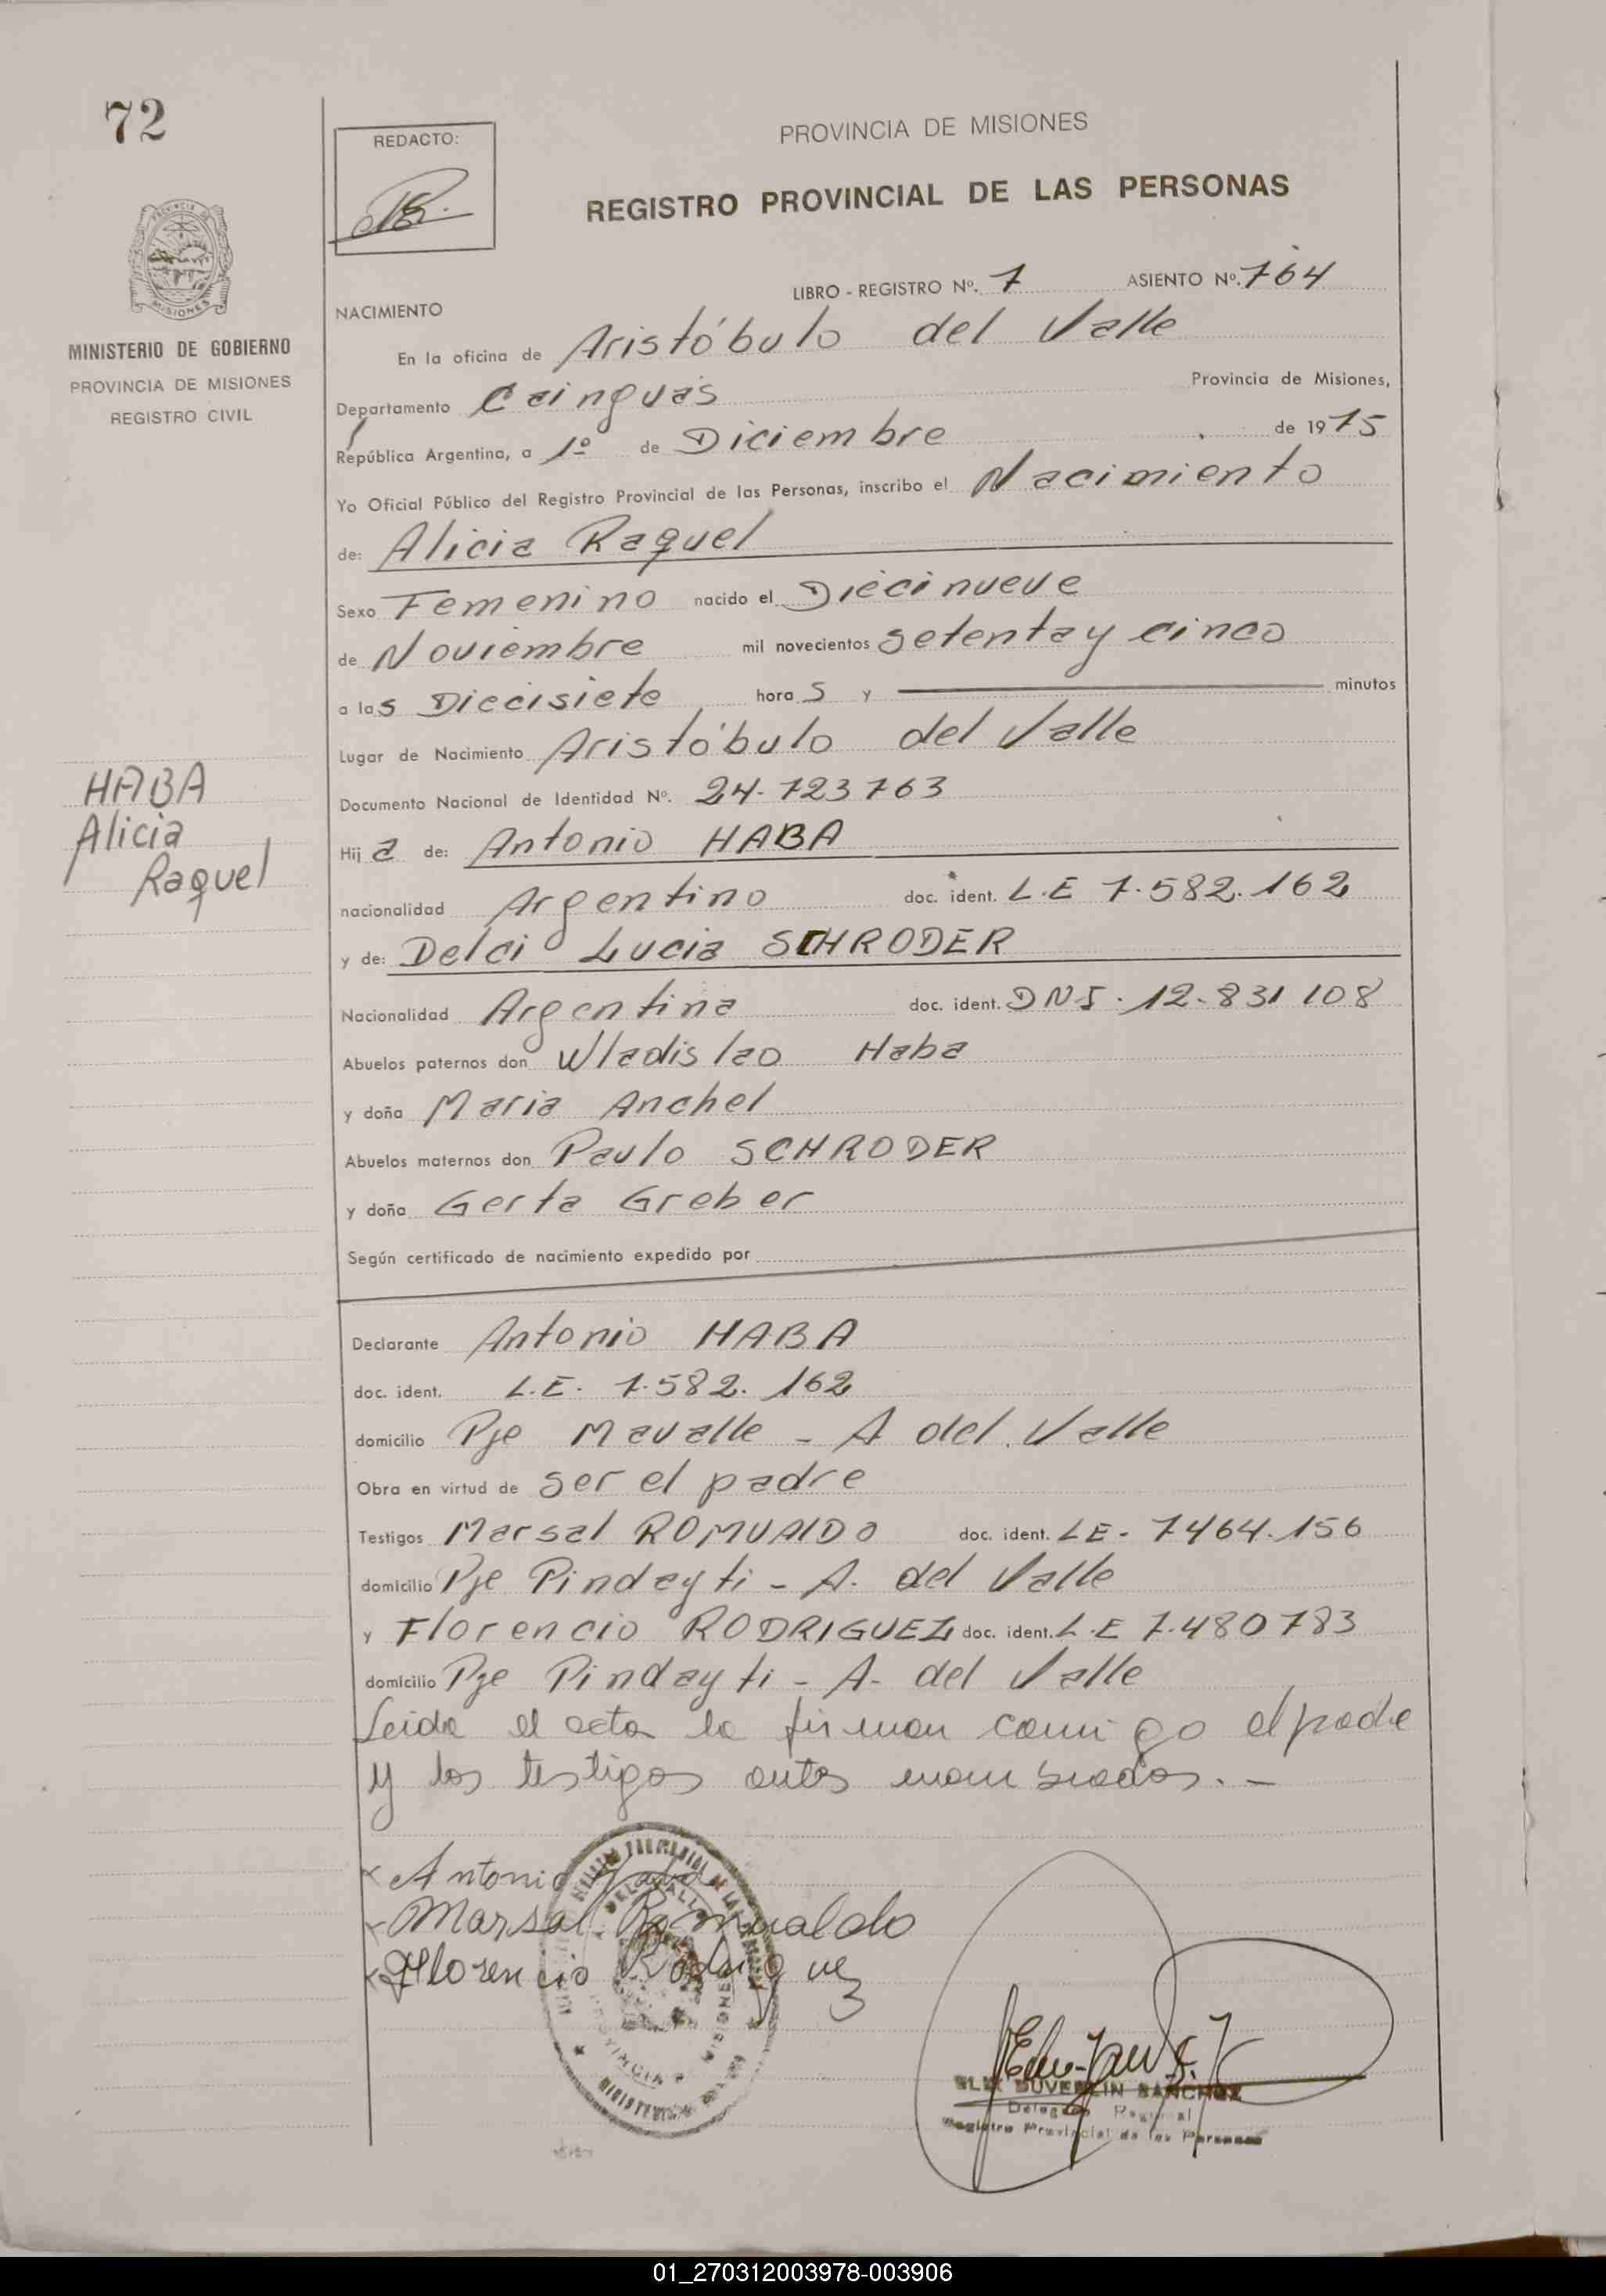 72
REDACTO:
PROVINCIA DE MISIONES
REGISTRO PROVINCIAL DE LAS PERSONAS
MISIONES
MINISTERIO DE GOBIERNO
PROVINCIA DE MISIONES
REGISTRO CIVIL
LIBRO - REGISTRO Nº. 7 ASIENTO Nº. 764
NACIMIENTO
En la oficina de Aristóbulo del Valle
Departamento Cainguás Provincia de Misiones,
República Argentina, a 1º de Diciembre de 1975
Yo Oficial Público del Registro Provincial de las Personas, inscribo el Nacimiento
de: Alicia Raquel
Sexo Femenino nacido el Diecinueve
de Noviembre mil novecientos setenta y cinco
a las Diecisiete horas y minutos
Lugar de Nacimiento Aristóbulo del Valle
Documento Nacional de Identidad Nº. 24-723763
HABA
Alicia
Raquel
Hija de: Antonio HABA
nacionalidad Argentino doc. ident. L.E 7.582.162
y de: Delci Lucia SCHRODER
Nacionalidad Argentina doc. ident. DNI. 12-831 108
Abuelos paternos don Wladislao Haba
y doña Maria Anchel
Abuelos maternos don Paulo SCHRODER
y doña Gerta Greber
Según certificado de nacimiento expedido por
Declarante Antonio HABA
doc. ident. L.E. 7.582.162
domicilio Pje Mavalle - A del Valle
Obra en virtud de ser el padre
Testigos Marsal ROMUALDO doc. ident. LE- 7464.156
domicilio Pje Pindayti - A. del Valle
y Florencio RODRIGUEZ doc. ident. L.E 7.480783
domicilio Pje Pindayti - A- del Valle
Leida el acta la firman comigo el padre
y los testigos antes nombrados.-
Antonio Haba
Marsal Romualdo
Florencio Rodriguez
SANCHEZ
Delegado Regional
Registro Provincial de las Personas
01_270312003978-003906